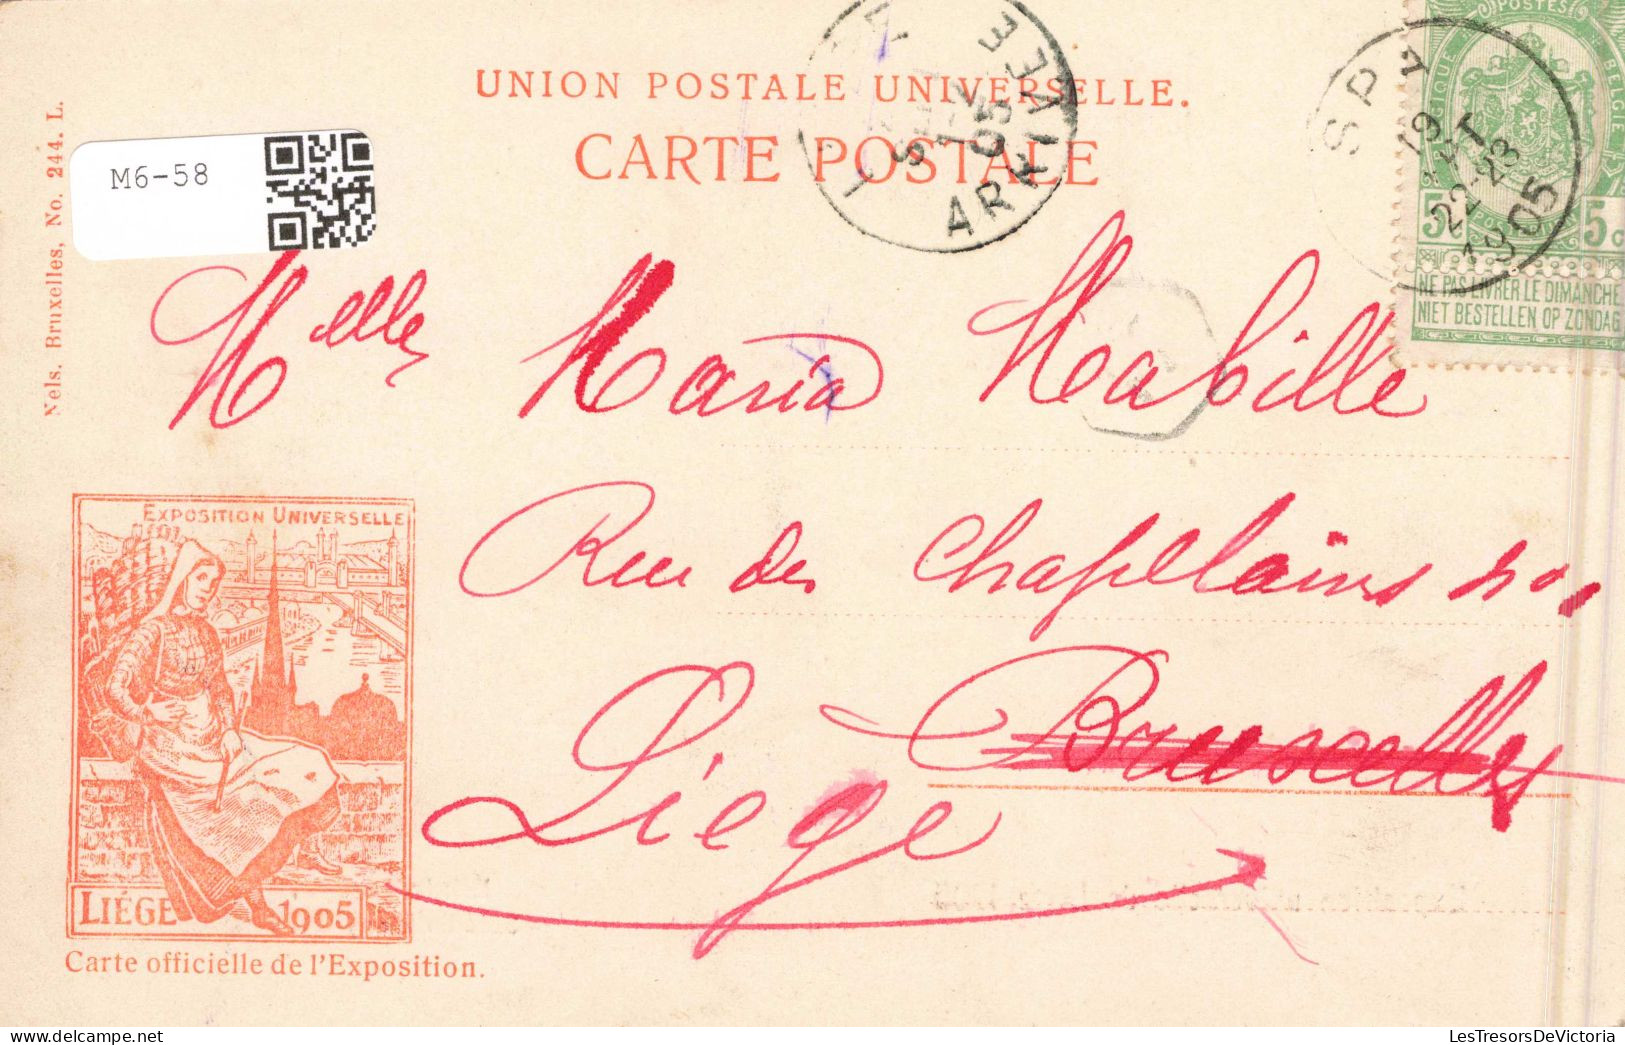 UNION POSTALE UNIVERSELLE.
CARTE POSTALE
Nels. Bruxelles, No. 244. L.
M6-58
ARRIVEE
05
SPY
19
22-23
1905
POSTES
BELGIQUE
BELGIË
5
5c
NE PAS LIVRER LE DIMANCHE
NIET BESTELLEN OP ZONDAG
Melle Maria Mabille
Rue des Chapelains
Bruxelles
Liège
EXPOSITION UNIVERSELLE
LIÉGE 1905
Carte officielle de l'Exposition.
LesTresorsDeVictoria.com